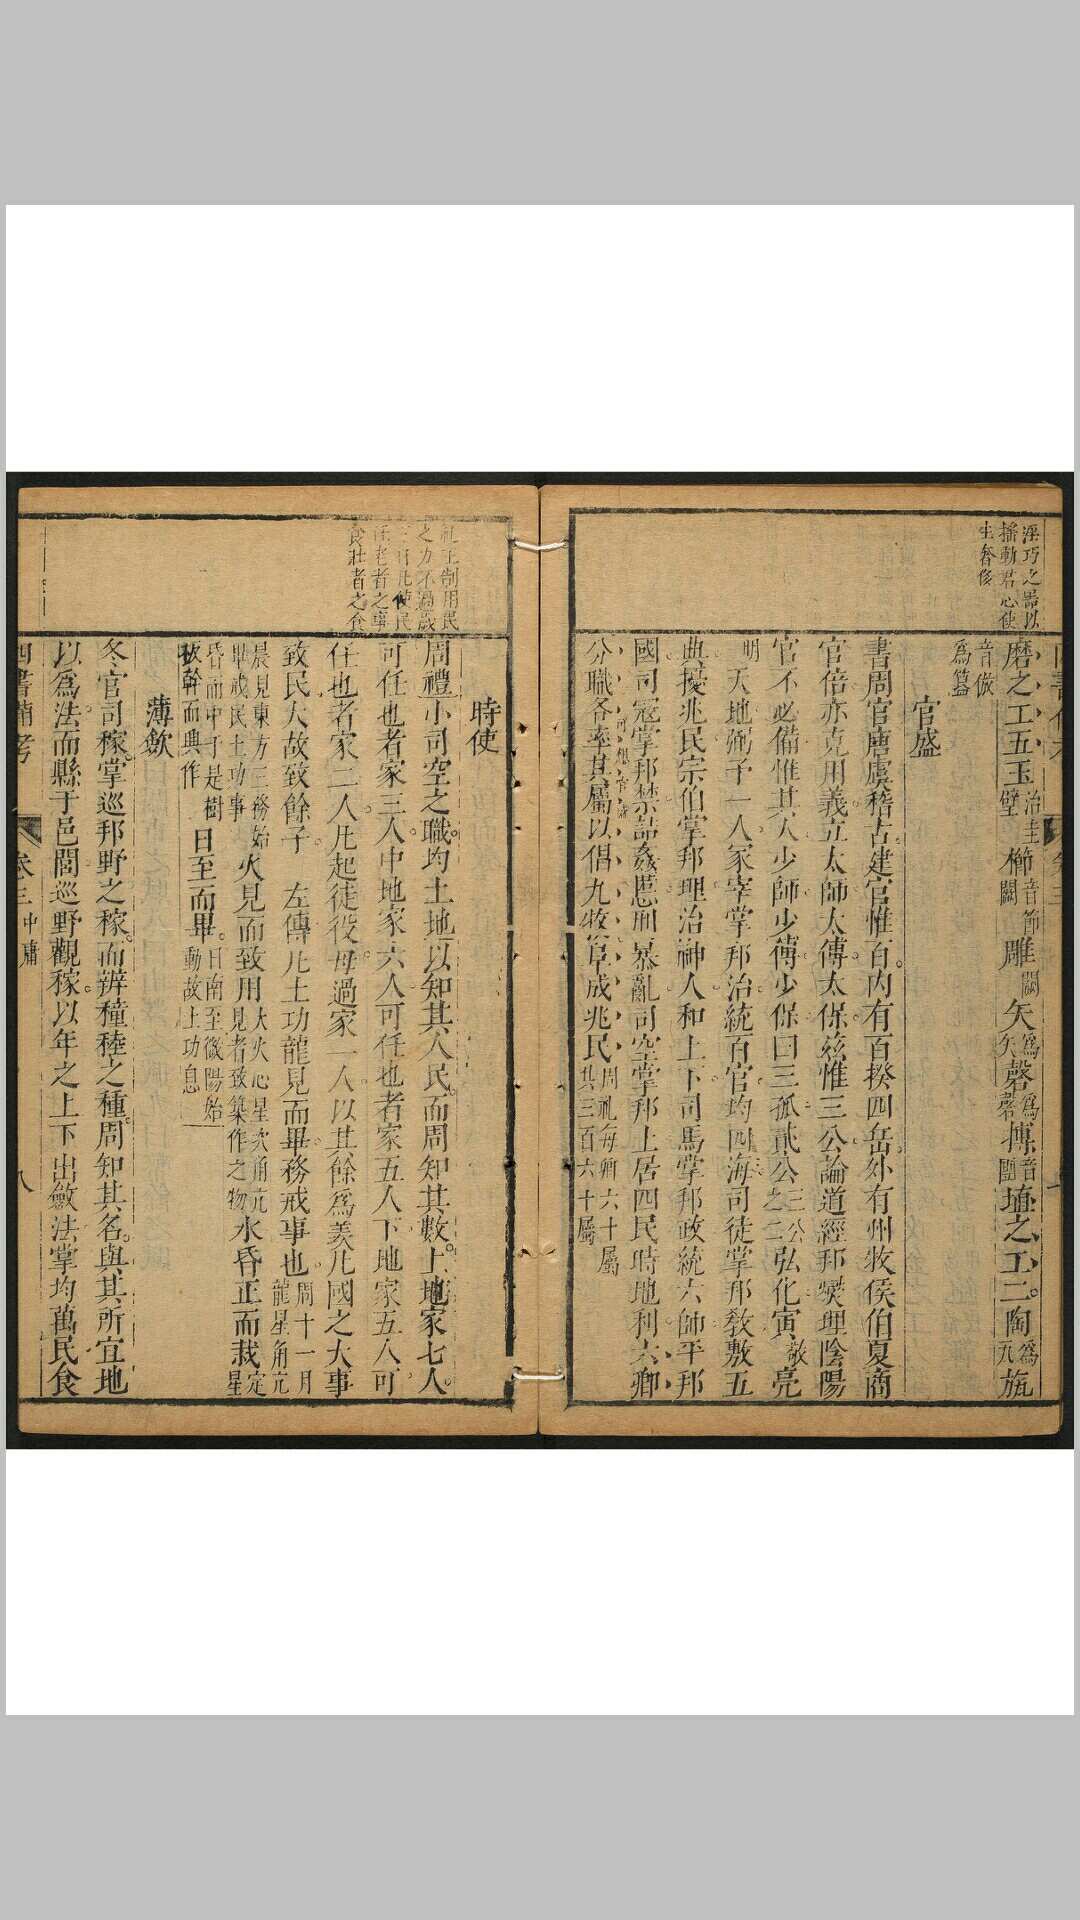 淫巧之器以
搖動君心使
生奢侈
磨之工五玉治圭璧櫛音節闕雕闕矢為矢磬為磬摶音團埴之工二陶為瓦瓬
音倣為簋
官盛
書周官唐虞稽古建官惟百內有百揆四岳外有州牧侯伯夏商
官倍亦克用義立太師太傅太保茲惟三公論道經邦爕理陰陽
官不必備惟其人少師少傅少保曰三孤貳公三公之二弘化寅敬亮
明天地弼予一人冢宰掌邦治統百官均四海司徒掌邦敎敷五
典擾兆民宗伯掌邦理治神人和上下司馬掌邦政統六師平邦
國司寇掌邦禁詰姦慝刑暴亂司空掌邦土居四民時地利六卿
分職各率其屬以倡九牧阜成兆民周礼每卿六十屬共三百六十屬
之力不過歲
任老者之事
食壯者之食
時使
周禮小司空之職均土地以知其人民而周知其數上地家七人
可任也者家三人中地家六人可任也者家五人下地家五人可
任也者家二人凡起徒役毋過家一人以其餘為羡凡國之大事
致民大故致餘子 左傳凡土功龍見而畢務戒事也周十一月龍星角亢
晨見東方三務始畢戒民土功事火見而致用大火心星次角亢見者致築作之物水昏正而栽定星
昏而中于是樹板幹而興作日至而畢日南至微陽始動故土功息
薄斂
冬官司稼掌巡邦野之稼而辨穜稑之種周知其名與其所宜地
以為法而縣于邑閭巡野觀稼以年之上下出斂法掌均萬民食
四書備考 卷三 中庸 八